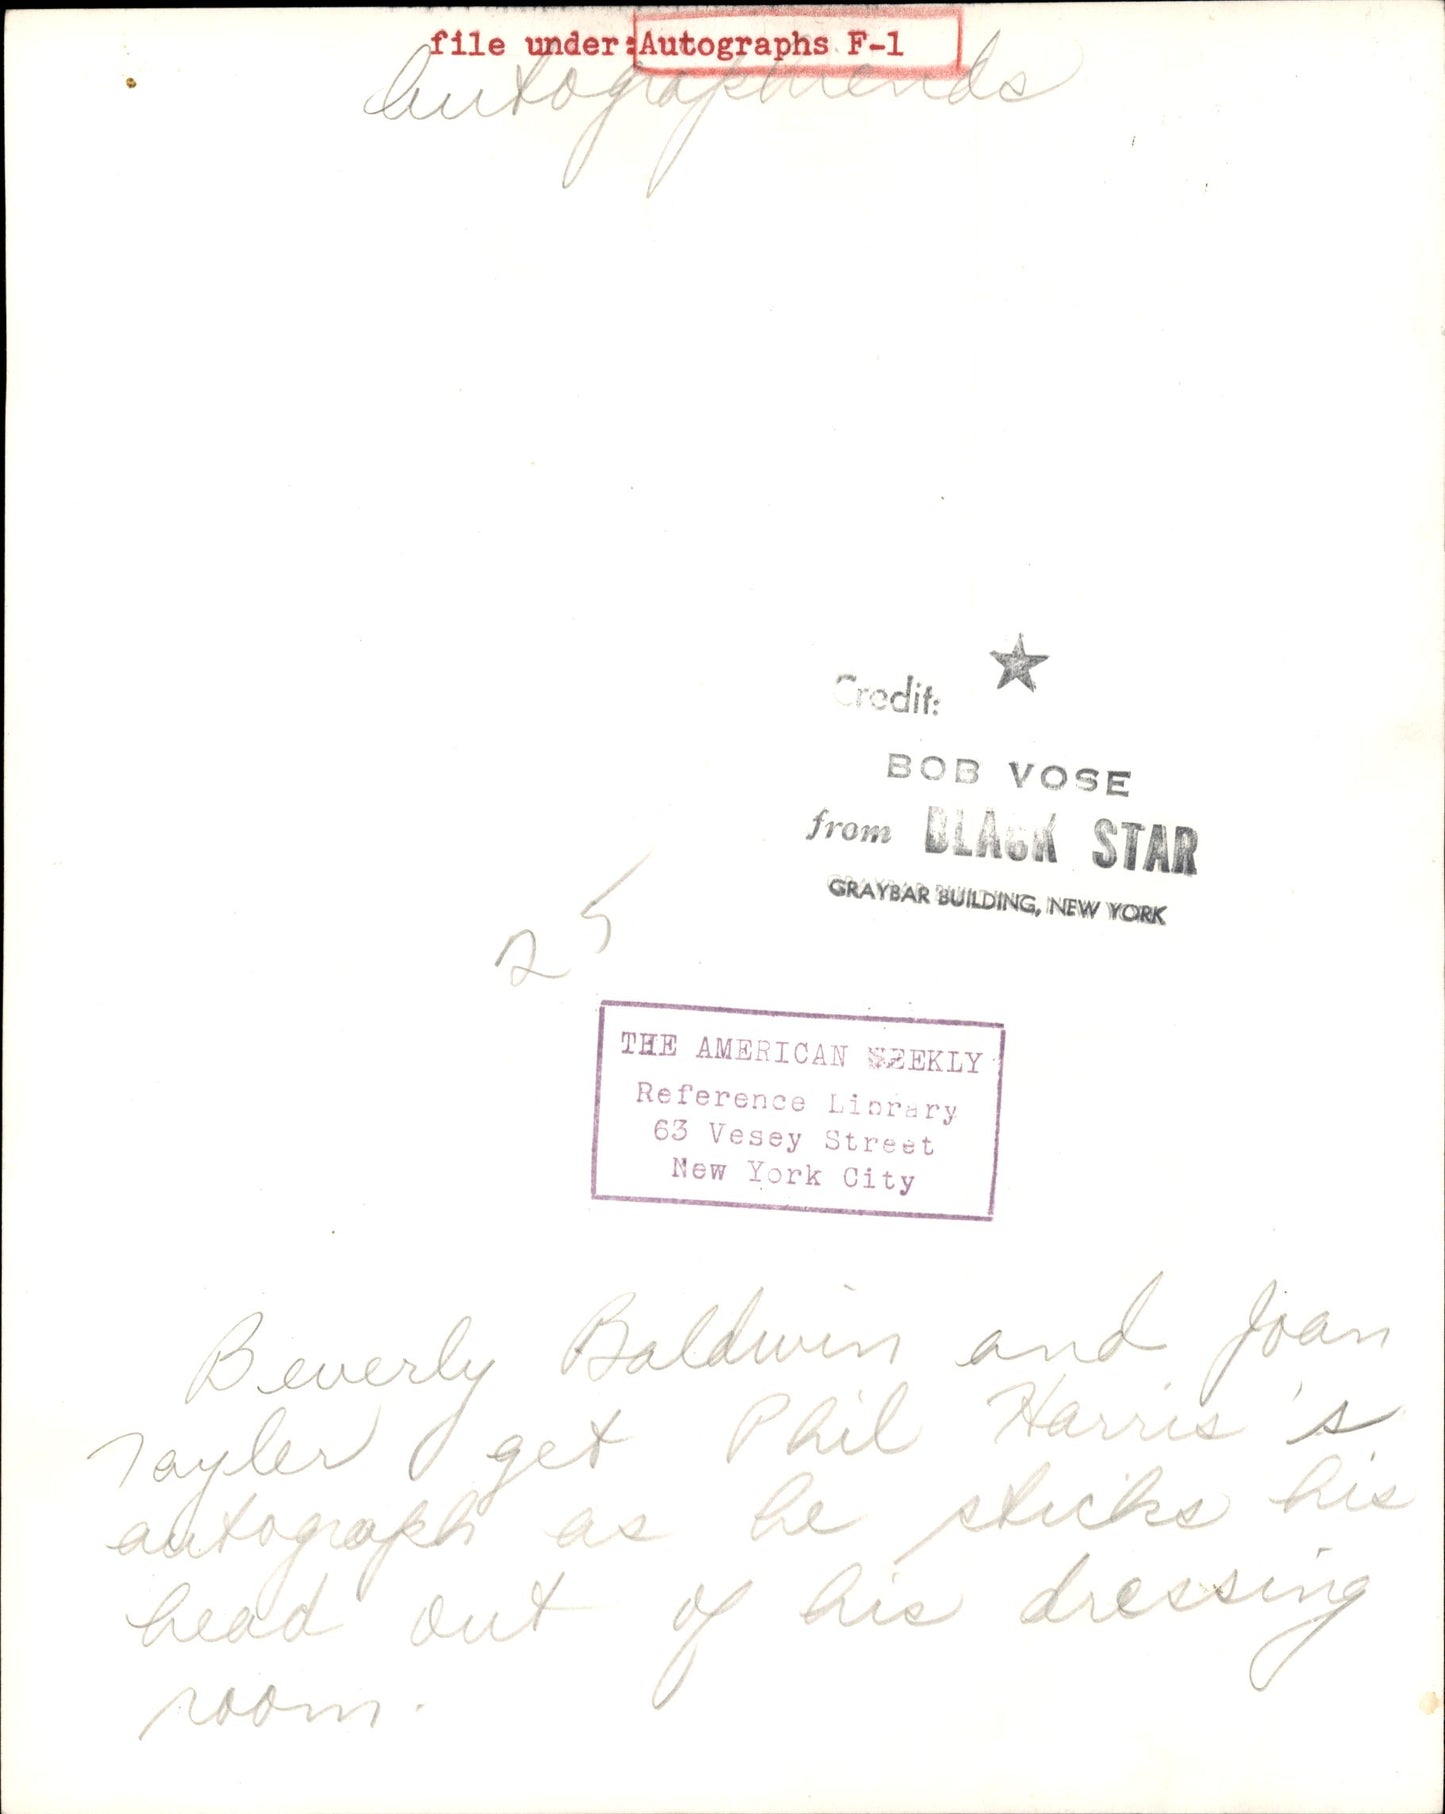 file under: Autographs F-1
Credit:
BOB VOSE
from BLACK STAR
GRAYBAR BUILDING, NEW YORK
25
THE AMERICAN WEEKLY
Reference Library
63 Vesey Street
New York City
Beverly Baldwin and Joan
Tayler get Phil Harris's
autograph as he sticks his
head out of his dressing
room.